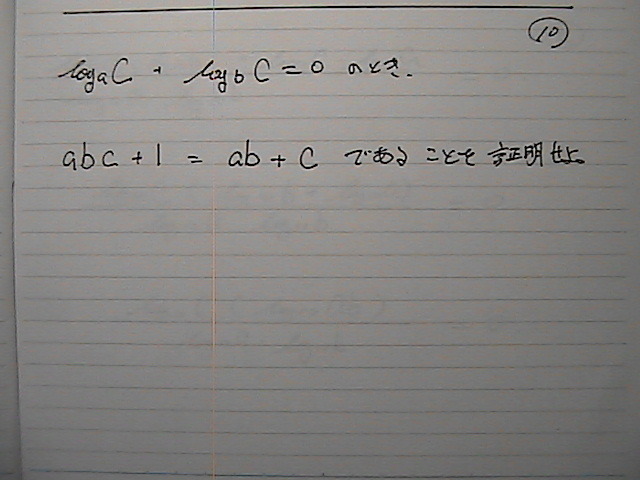 ⑩
logₐC + log_b C = 0 のとき.
abc + 1 = ab + c であることを証明せよ。